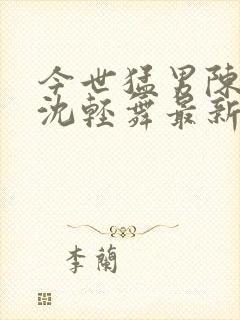 今世猛男陳
沈輕舞最新
李蘭